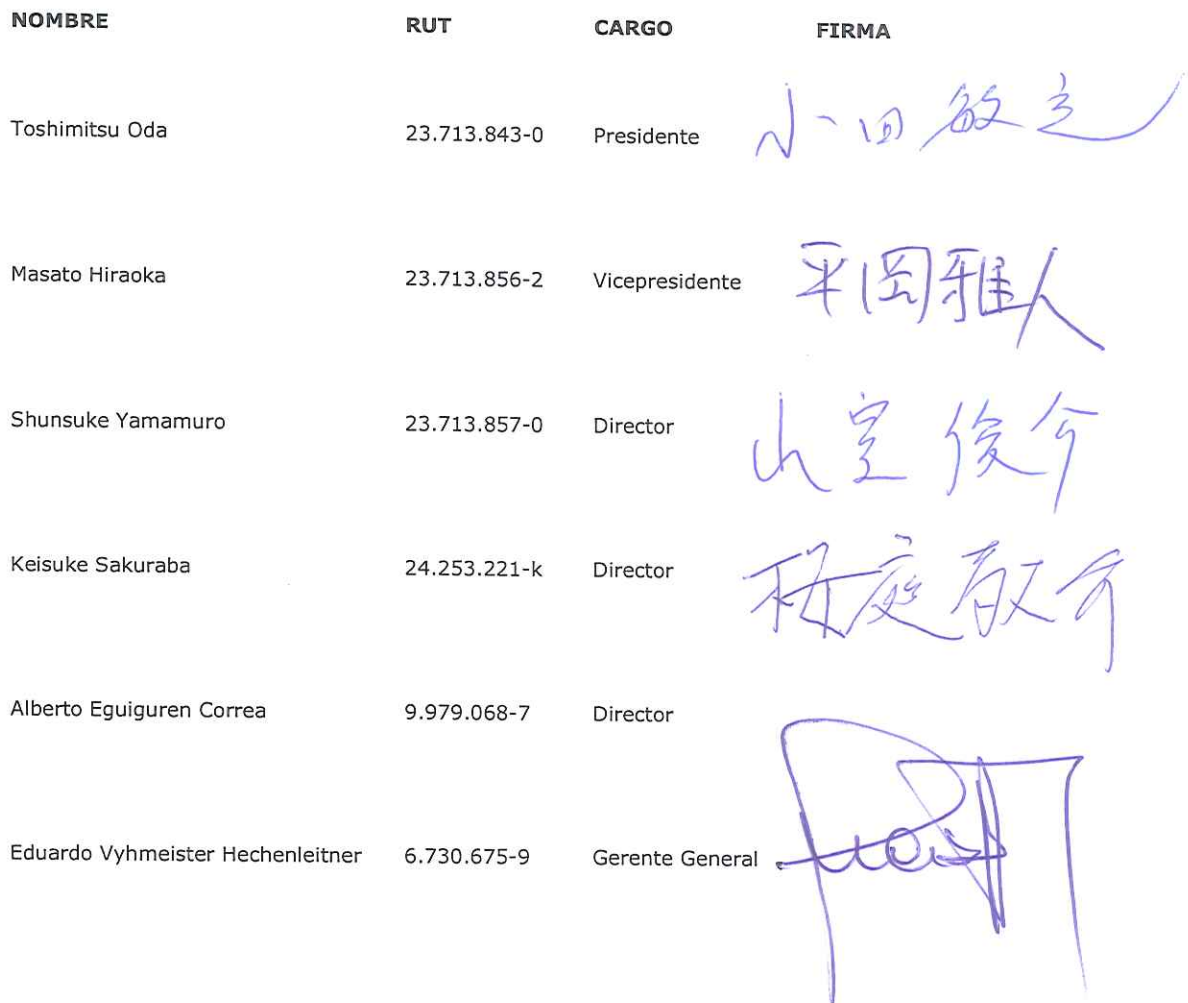 NOMBRE RUT CARGO FIRMA
Toshimitsu Oda 23.713.843-0 Presidente 小田敏之
Masato Hiraoka 23.713.856-2 Vicepresidente 平岡雅人
Shunsuke Yamamuro 23.713.857-0 Director 山室俊介
Keisuke Sakuraba 24.253.221-k Director 桜庭敬介
Alberto Eguiguren Correa 9.979.068-7 Director
Eduardo Vyhmeister Hechenleitner 6.730.675-9 Gerente General